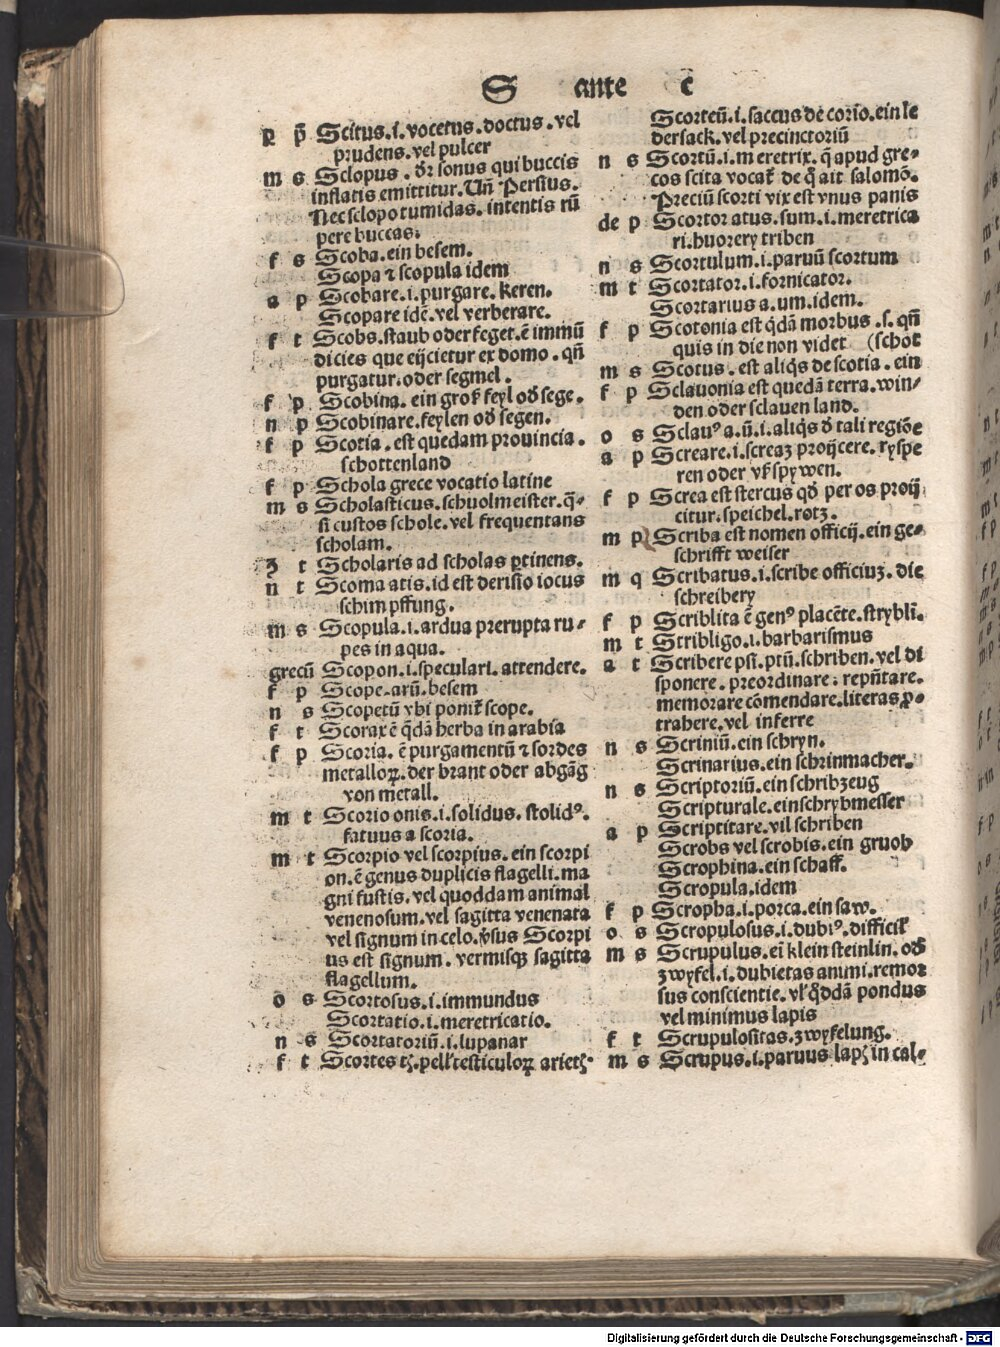 S ante c
p p̄ Scitus.i.vocetus.doctus.vel
prudens.vel pulcer
m s Sclopus.dr̄ sonus qui buccis
inflatis emittitur.Un̄ Persius.
Nec sclopo tumidas.intentis rū
pere buccas.
f s Scoba.ein besem.
Scopa ⁊ scopula idem
a p Scobare.i.purgare.keren.
Scopare idē.vel verberare.
f t Scobs.staub oder feget.ē immū
dicies que eijcietur ex domo.qn̄
purgatur.oder segmel.
f p Scobina.ein groß feyl od̄ sege.
n p Scobinare.feylen od̄ segen.
f p Scotia.est quedam prouincia.
schottenland
f p Schola grece vocatio latine
m s Scholasticus.schuolmeister.q̄-
si custos schole.vel frequentans
scholam.
ʒ t Scholaris ad scholas ꝑtinens.
n t Scoma atis.id est derisio iocus
schimpffung.
m s Scopula.i.ardua prerupta ru-
pes in aqua.
grecū Scopon.i.speculari.attendere.
f p Scope.arū.besem
n s Scopetū vbi ponit̄ scope.
f t Scorax ē q̄dā herba in arabia
f p Scoria.ē purgamentū ⁊ sordes
metalloꝝ.der brant oder abgāg
von metall.
m t Scorio onis.i.solidus.stolidꝰ.
fatuus a scoria.
m t Scorpio vel scorpius.ein scorpi
on.ē genus duplicis flagelli.ma
gni fustis.vel quoddam animal
venenosum.vel sagitta venenata
vel signum in celo.v̄sus Scorpi
us est signum.vermisqꝫ sagitta
flagellum.
o s Scortosus.i.immundus
Scortatio.i.meretricatio.
n s Scortatoriū.i.lupanar
f t Scortes tꝭ.pell' testiculoꝝ arietꝭ.
Scorteū.i.saccus de corio.ein le
dersack.vel precinctoriū
n s Scortū.i.meretrix.q̄ apud gre-
cos scita vocat̄ de q̄ ait salomō.
Preciū scorti vix est vnus panis
de p Scortor atus.sum.i.meretrica
ri.huorery triben
n s Scortulum.i.paruū scortum
m t Scortator.i.fornicator.
Scortarius a.um.idem.
f p Scotonia est q̄dā morbus.s.qn̄
quis in die non videt (schot
m s Scotus.est aliq̄s de scotia.ein
f p Sclauonia est quedā terra.win-
den oder sclauen land.
o s Sclauꝰ a.ū.i.aliq̄s d̄ tali regiōe
a p Screare.i.screaꝫ proijcere.ryspe
ren oder vßspywen.
f p Screa est stercus qd̄ per os proij
citur.speichel.rotz.
m p Scriba est nomen officij.ein ge-
schrifft weiser
m q Scribatus.i.scribe officiuꝫ.die
schreibery
f p Scriblita ē genꝰ placēte.stryblī.
m t Stribligo.i.barbarismus
a t Scribere psi.ptū.schriben.vel di
sponere.preordinare:repn̄tare.
memorare cōmendare.literas ꝓ-
trahere.vel inferre
n s Scriniū.ein schryn.
Scrinarius.ein schrinmacher.
n s Scriptoriū.ein schribzeug
Scripturale.ein schrybmesser
a p Scriptitare.vil schriben
Scrobs vel scrobis.ein gruob
Scrophina.ein schaff.
Scropula.idem
f p Scropha.i.porca.ein saw.
o s Scropulosus.i.dubiꝰ.difficil'
m s Scrupulus.eī klein steinlin.od̄
zwyfel.i.dubietas animi.remor
sus conscientie.vl' q̄ddā pondus
vel minimus lapis
f t Scrupulositas.zwyfelung.
m s Scrupus.i.paruus lapꝭ in cal-
Digitalisierung gefördert durch die Deutsche Forschungsgemeinschaft - DFG